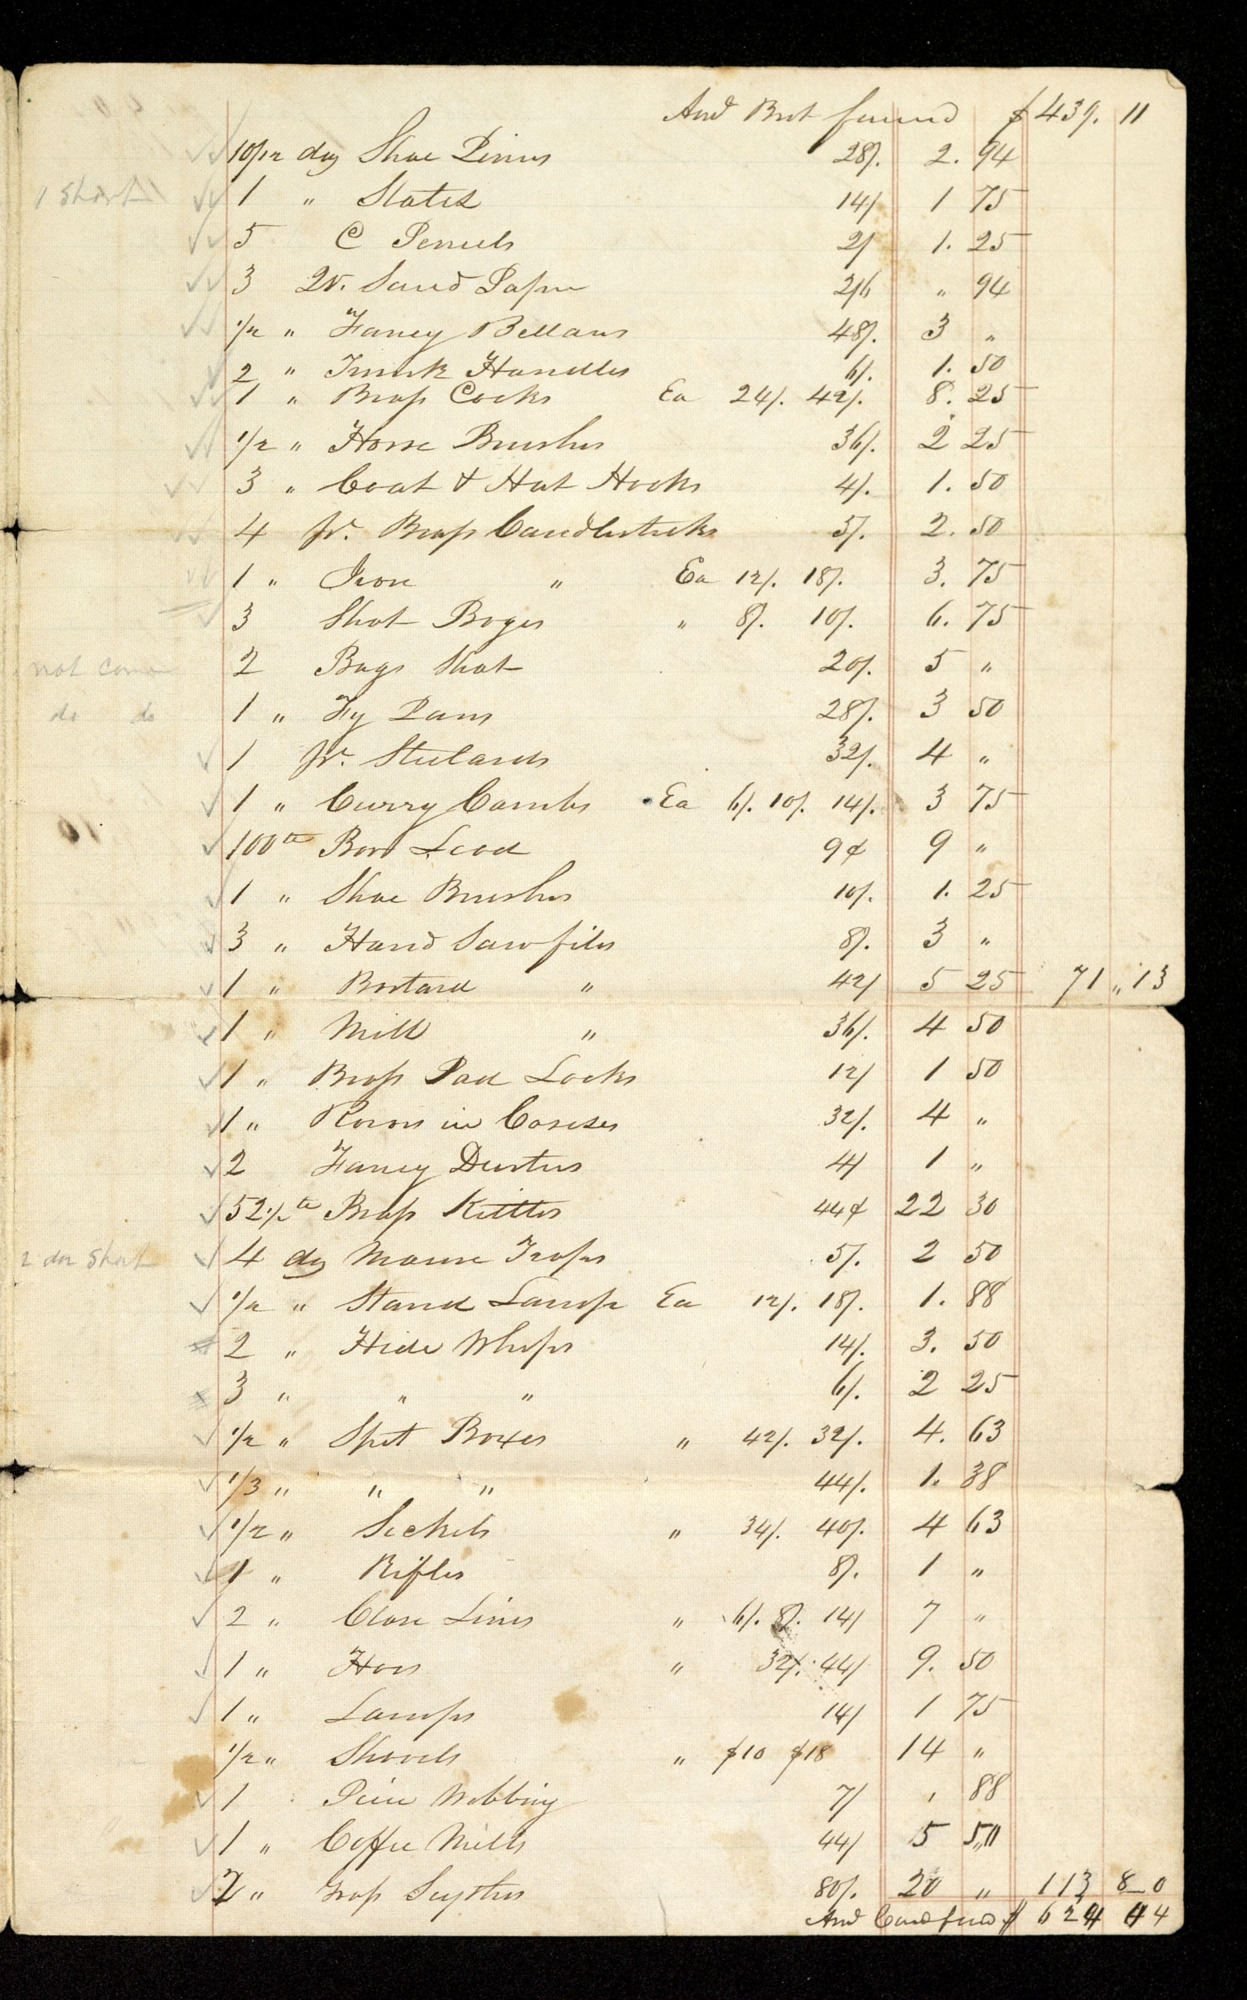 And Brot forward $439. 11
10/12 doz Shoe Pinns 28/. 2. 94
1 short 1 " Slates 14/ 1 75
5 C Pencils 2/ 1. 25
3 Qr. Sand Paper 2/6 " 94
1/2 " Fancy Bellows 48/. 3 "
2 " Trunk Handles 6/. 1. 50
1 " Brass Cocks Ea 24/. 42/. 8. 25
1/2 " Horse Brushes 36/. 2 25
3 " Coat & Hat Hooks 4/. 1. 50
4 pr. Brass Candlesticks 5/. 2. 50
1 " Iron " Ea 12/. 18/. 3. 75
3 Shot Bags " 8/. 10/. 6. 75
not come 2 Bags Shot 20/. 5 "
do do 1 " Fy Pans 28/. 3 50
1 pr. Steelards 32/. 4 "
1 " Curry Combs Ea 6/. 10/. 14/. 3 75
100 lb Bar Lead 9¢ 9 "
1 " Shoe Brushes 10/. 1. 25
3 " Hand Saw files 8/. 3 "
1 " Bastard " 42/ 5 25 71 " 13
1 " Mill " 36/. 4 50
1 " Brass Pad Locks 12/ 1 50
1 " Razors in Cases 32/. 4 "
2 Fancy Dusters 4/ 1 "
52 1/2 lb Brass Kittles 44¢ 22 30
2 doz short 4 doz Mouse Traps 5/. 2 50
1/2 " Stand Lamps Ea 12/. 18/. 1. 88
2 " Hide Whips 14/. 3. 50
3 " " " 6/. 2 25
1/2 " Spit Boxes " 42/. 32/. 4. 63
1/3 " " " 44/. 1. 38
1/2 " Sickels " 34/. 40/. 4 63
1 " Rifles 8/. 1 "
2 " Close Lines " 6/. 8/. 14/ 7 "
1 " Hoes " 32/. 44/ 9. 50
1 " Lamps 14/ 1 75
1/2 " Shovels " $10 $18 14 "
1 Piece Webbing 7/ . 88
1 " Coffee Mills 44/ 5 50
2 " Grass Scythes 80/. 20 " 113 80
And Card forwd $ 624 44